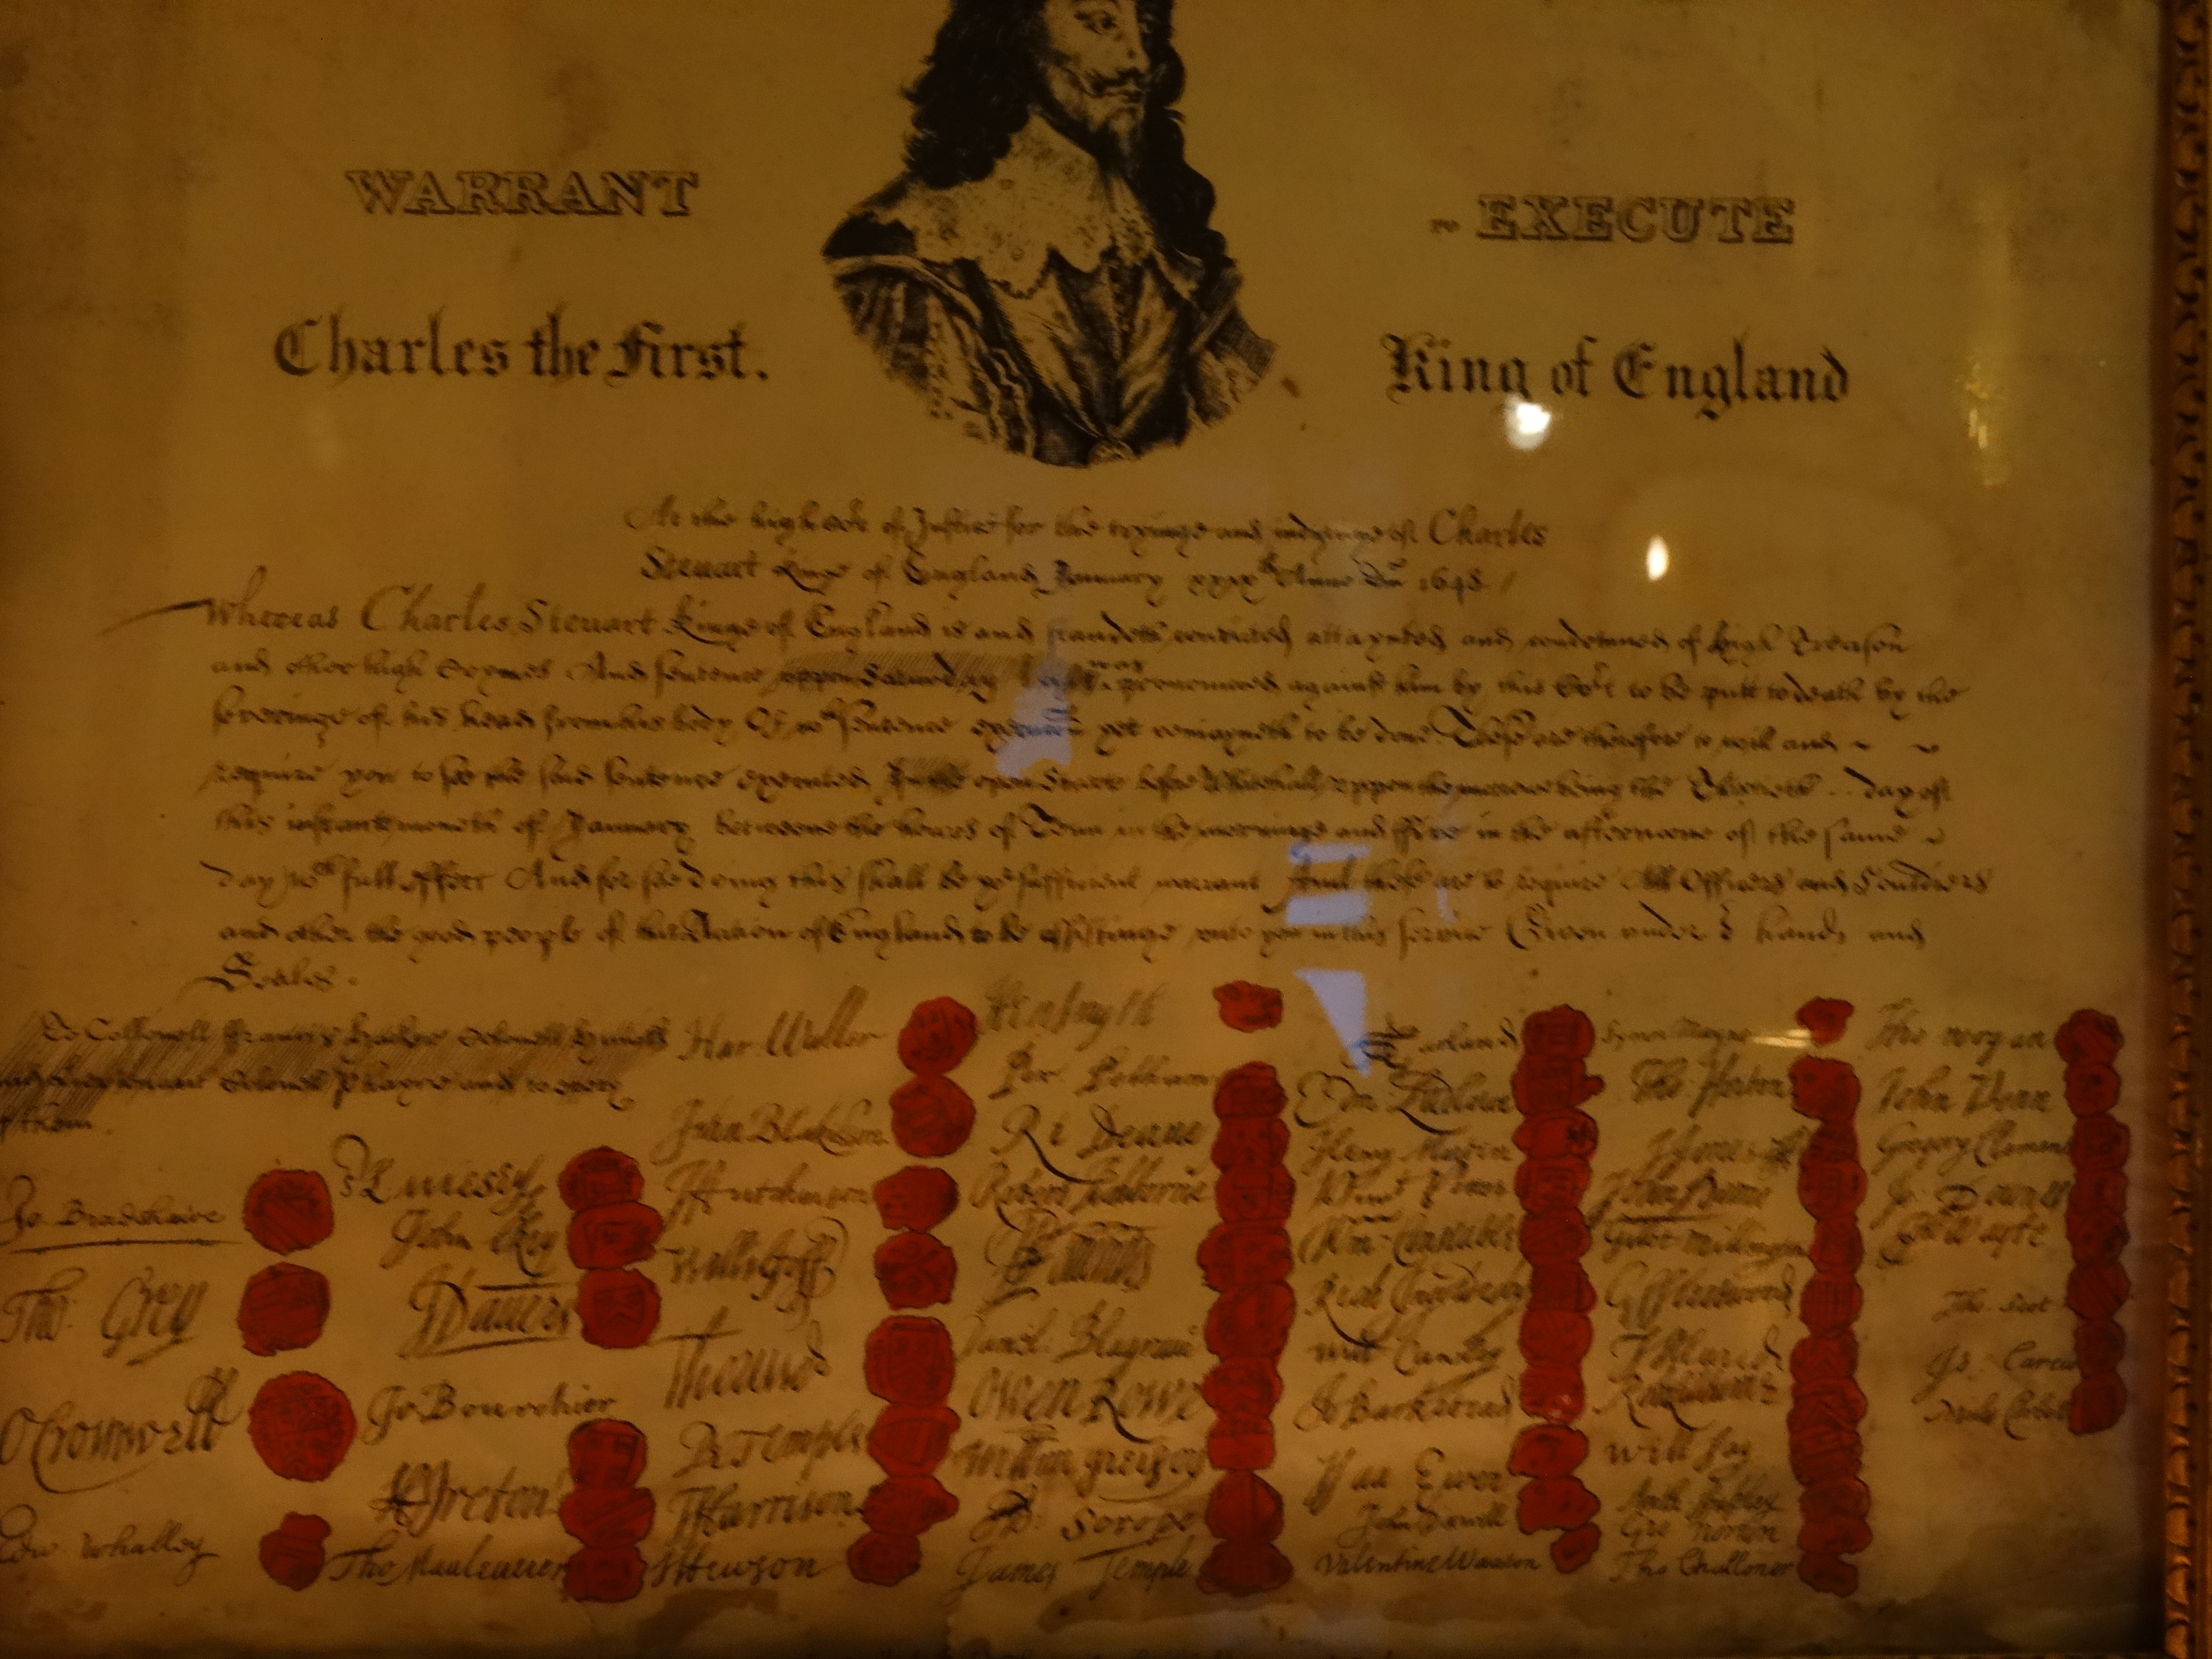 WARRANT TO EXECUTE
Charles the First. King of England
At the high Cort of Justice for the tryinge and iudginge of Charles
Steuart Kinge of England January xxixth Anno Dni 1648.
Whereas Charles Steuart Kinge of England is and standeth convicted attaynted and condemned of high Treason
and other high Crymes And sentence uppon Saturday last was pronounced against him by this Cort to be putt to death by the
severinge of his head from his body Of wch sentence execucon yet remayneth to be done These are therefore to will and
require you to see the said sentence executed In the open Streete before Whitehall uppon the morrowe being the Thirtieth day of
this instant moneth of January betweene the houres of Tenn in the morninge and ffive in the afternoone of the same
day wth full effect And for soe doing this shall be yor sufficient warrant And these are to require All Officers and Souldiers
and other the good people of this Nation of England to be assistinge unto you in this service Given under hands and
Seales.
To Collonell ffrancis Hacker Colonell Huncks
and Colonell Phayre and to every
of them.
Jo. Bradshawe
Tho: Grey
O Cromwell
Edw Whalley
John Okey
J Dauers
Jo Bourchier
H Ireton
Tho Mauleverer
Har: Waller
John Blakiston
J Hutchinson
Willi Goff
P Temple
T Harrison
J Hewson
Hen Smyth
Per. Pelham
Ri Deane
Robert Tichborne
Daniel Blagrave
Owen Rowe
Ad: Scrope
James Temple
Edm: Ludlowe
Henry Marten
Vinct Potter
Wm Constable
Rich Ingoldesby
Will Cawley
Jo Barkstead
Isaa Ewer
John Dixwell
Valentine Wauton
Symon Mayne
Tho Horton
J Jones
Gilbt Millington
G Fleetwood
J Alured
Will Say
Anth Stapley
Gre Norton
Tho Challoner
Tho Wogan
John Venn
Gregory Clement
Jo Downes
Tho Wayte
Tho Scot
Jo Carew
Miles Corbet